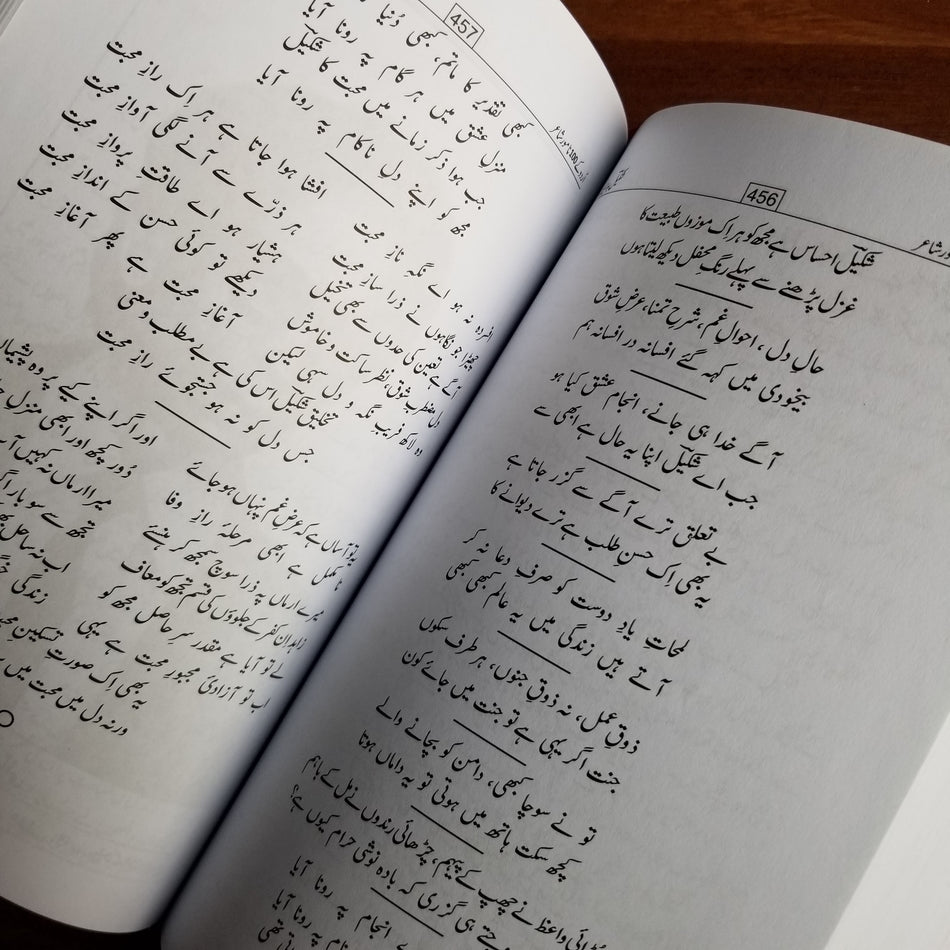 456
شکیلؔ احساس ہے مجھ کو ہر اک موزوں طبیعت کا
غزل پڑھنے سے پہلے رنگِ محفل دیکھ لیتا ہوں
حالِ دل، احوالِ غم، شرحِ تمنا، عرضِ شوق
بیخودی میں کہہ گئے افسانہ در افسانہ ہم
آگے خدا ہی جانے، انجامِ عشق کیا ہو
جب اے شکیلؔ اپنا یہ حال ہے ابھی سے
بے تعلق ترے آگے سے گزر جاتا ہے
یہ بھی اک حسنِ طلب ہے ترے دیوانے کا
لمحاتِ یادِ دوست کو صرفِ دعا نہ کر
آتے ہیں زندگی میں یہ عالم کبھی کبھی
ذوقِ عمل، نہ ذوقِ جنوں، ہر طرف سکوں
جنت اگر یہی ہے تو جنت میں جائے کون
تو نے سوچا کبھی، دامن کو بچانے والے
کچھ سکت ہاتھ میں ہوتی تو یہ داماں ہوتا
واعظ نے چھپ کے پیہم، چڑھائی رندوں نے مل کے باہم
ہی گزری کہ بادہ نوشی حرام کیوں ہے؟
انجام پہ رونا آیا
پہ رونا آیا
457
کبھی تقدیر کا ماتم، کبھی دُنیا
منزلِ عشق میں ہر گام پہ رونا آیا
جب ہوا ذکر زمانے میں محبت کا شکیلؔ
مجھ کو اپنے دلِ ناکام پہ رونا آیا
افشا ہوا جاتا ہے ہر اِک رازِ محبت
ہر ذرّے سے آنے لگی آوازِ محبت
افسردہ نہ ہو اے نگہِ نازِ محبت
ہشیار ہو اے طاقتِ پروازِ محبت
چھیڑا جو نگاہوں نے ذرا سازِ محبت
دیکھے تو کوئی حسن کے اندازِ محبت
آگے ہے تعین کی حدوں سے بھی تخیل
آغازِ محبت ہے پھر آغازِ محبت
دل مضطرب شوق، نظر ساکت و خاموش
وہ لاکھ فریبِ نگہ و دل سہی لیکن
تخلیق شکیلؔ اس کی ہے بے مطلب و معنی
جس دل کو نہ ہو جستجوئے رازِ محبت
یہ تو آساں ہے کہ عرضِ غم پنہاں ہو جائے
اور اگر اپنے کیے پر وہ پشیماں
نامکمل ہے ابھی مرحلۂ رازِ وفا
دُور کچھ اور ابھی منزلِ
میرے ارماں پہ ذرا سوچ سمجھ کر ہنسئے
میرا ارماں نہ کہیں آپ
زاہد اِن کفر کے جلووں کی قسم تجھ کو معاف
تجھ سے سو بار اگر
لے تو آیا ہے مقدر سرِ حاصل مجھ کو
اب نہ ساحل
اب تو آزادیٔ مجبورِ محبت ہے یہی
زندگی
یہ بھی اِک صورتِ تسکینِ
ورنہ دل میں محبت میں